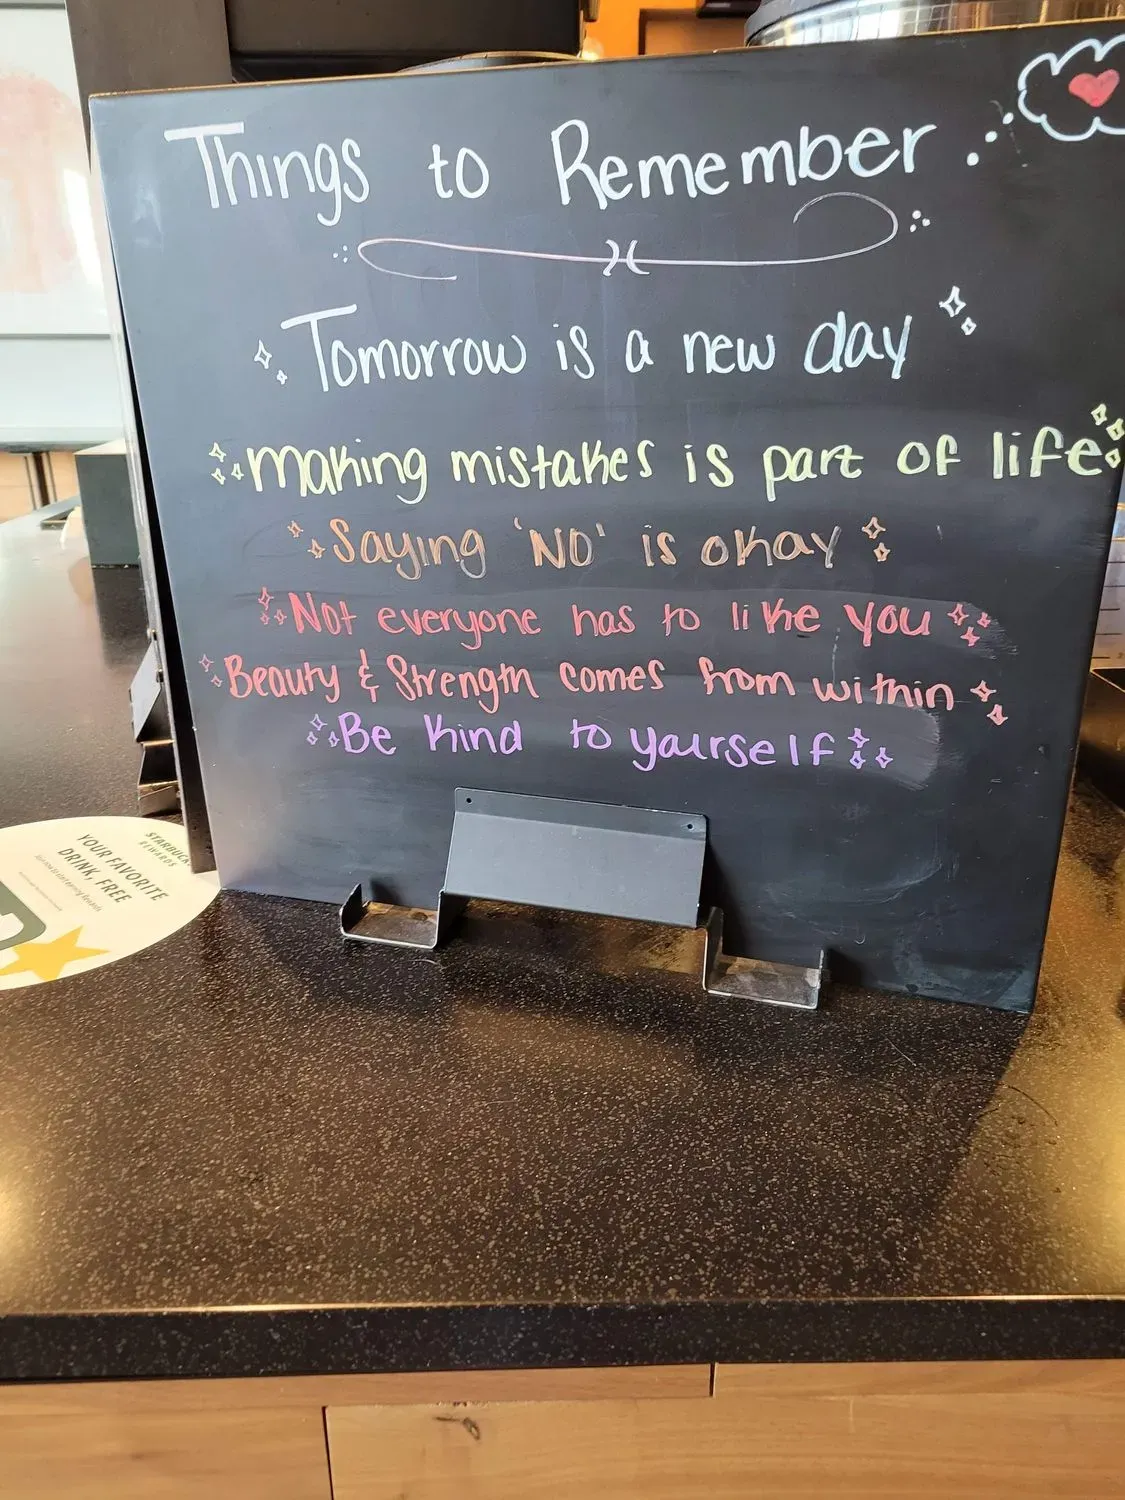 Things to Remember
Tomorrow is a new day
making mistakes is part of life
Saying 'NO' is okay
Not everyone has to like you
Beauty & Strength comes from within
Be kind to yourself
STARBUCKS
REWARDS
YOUR FAVORITE
DRINK, FREE